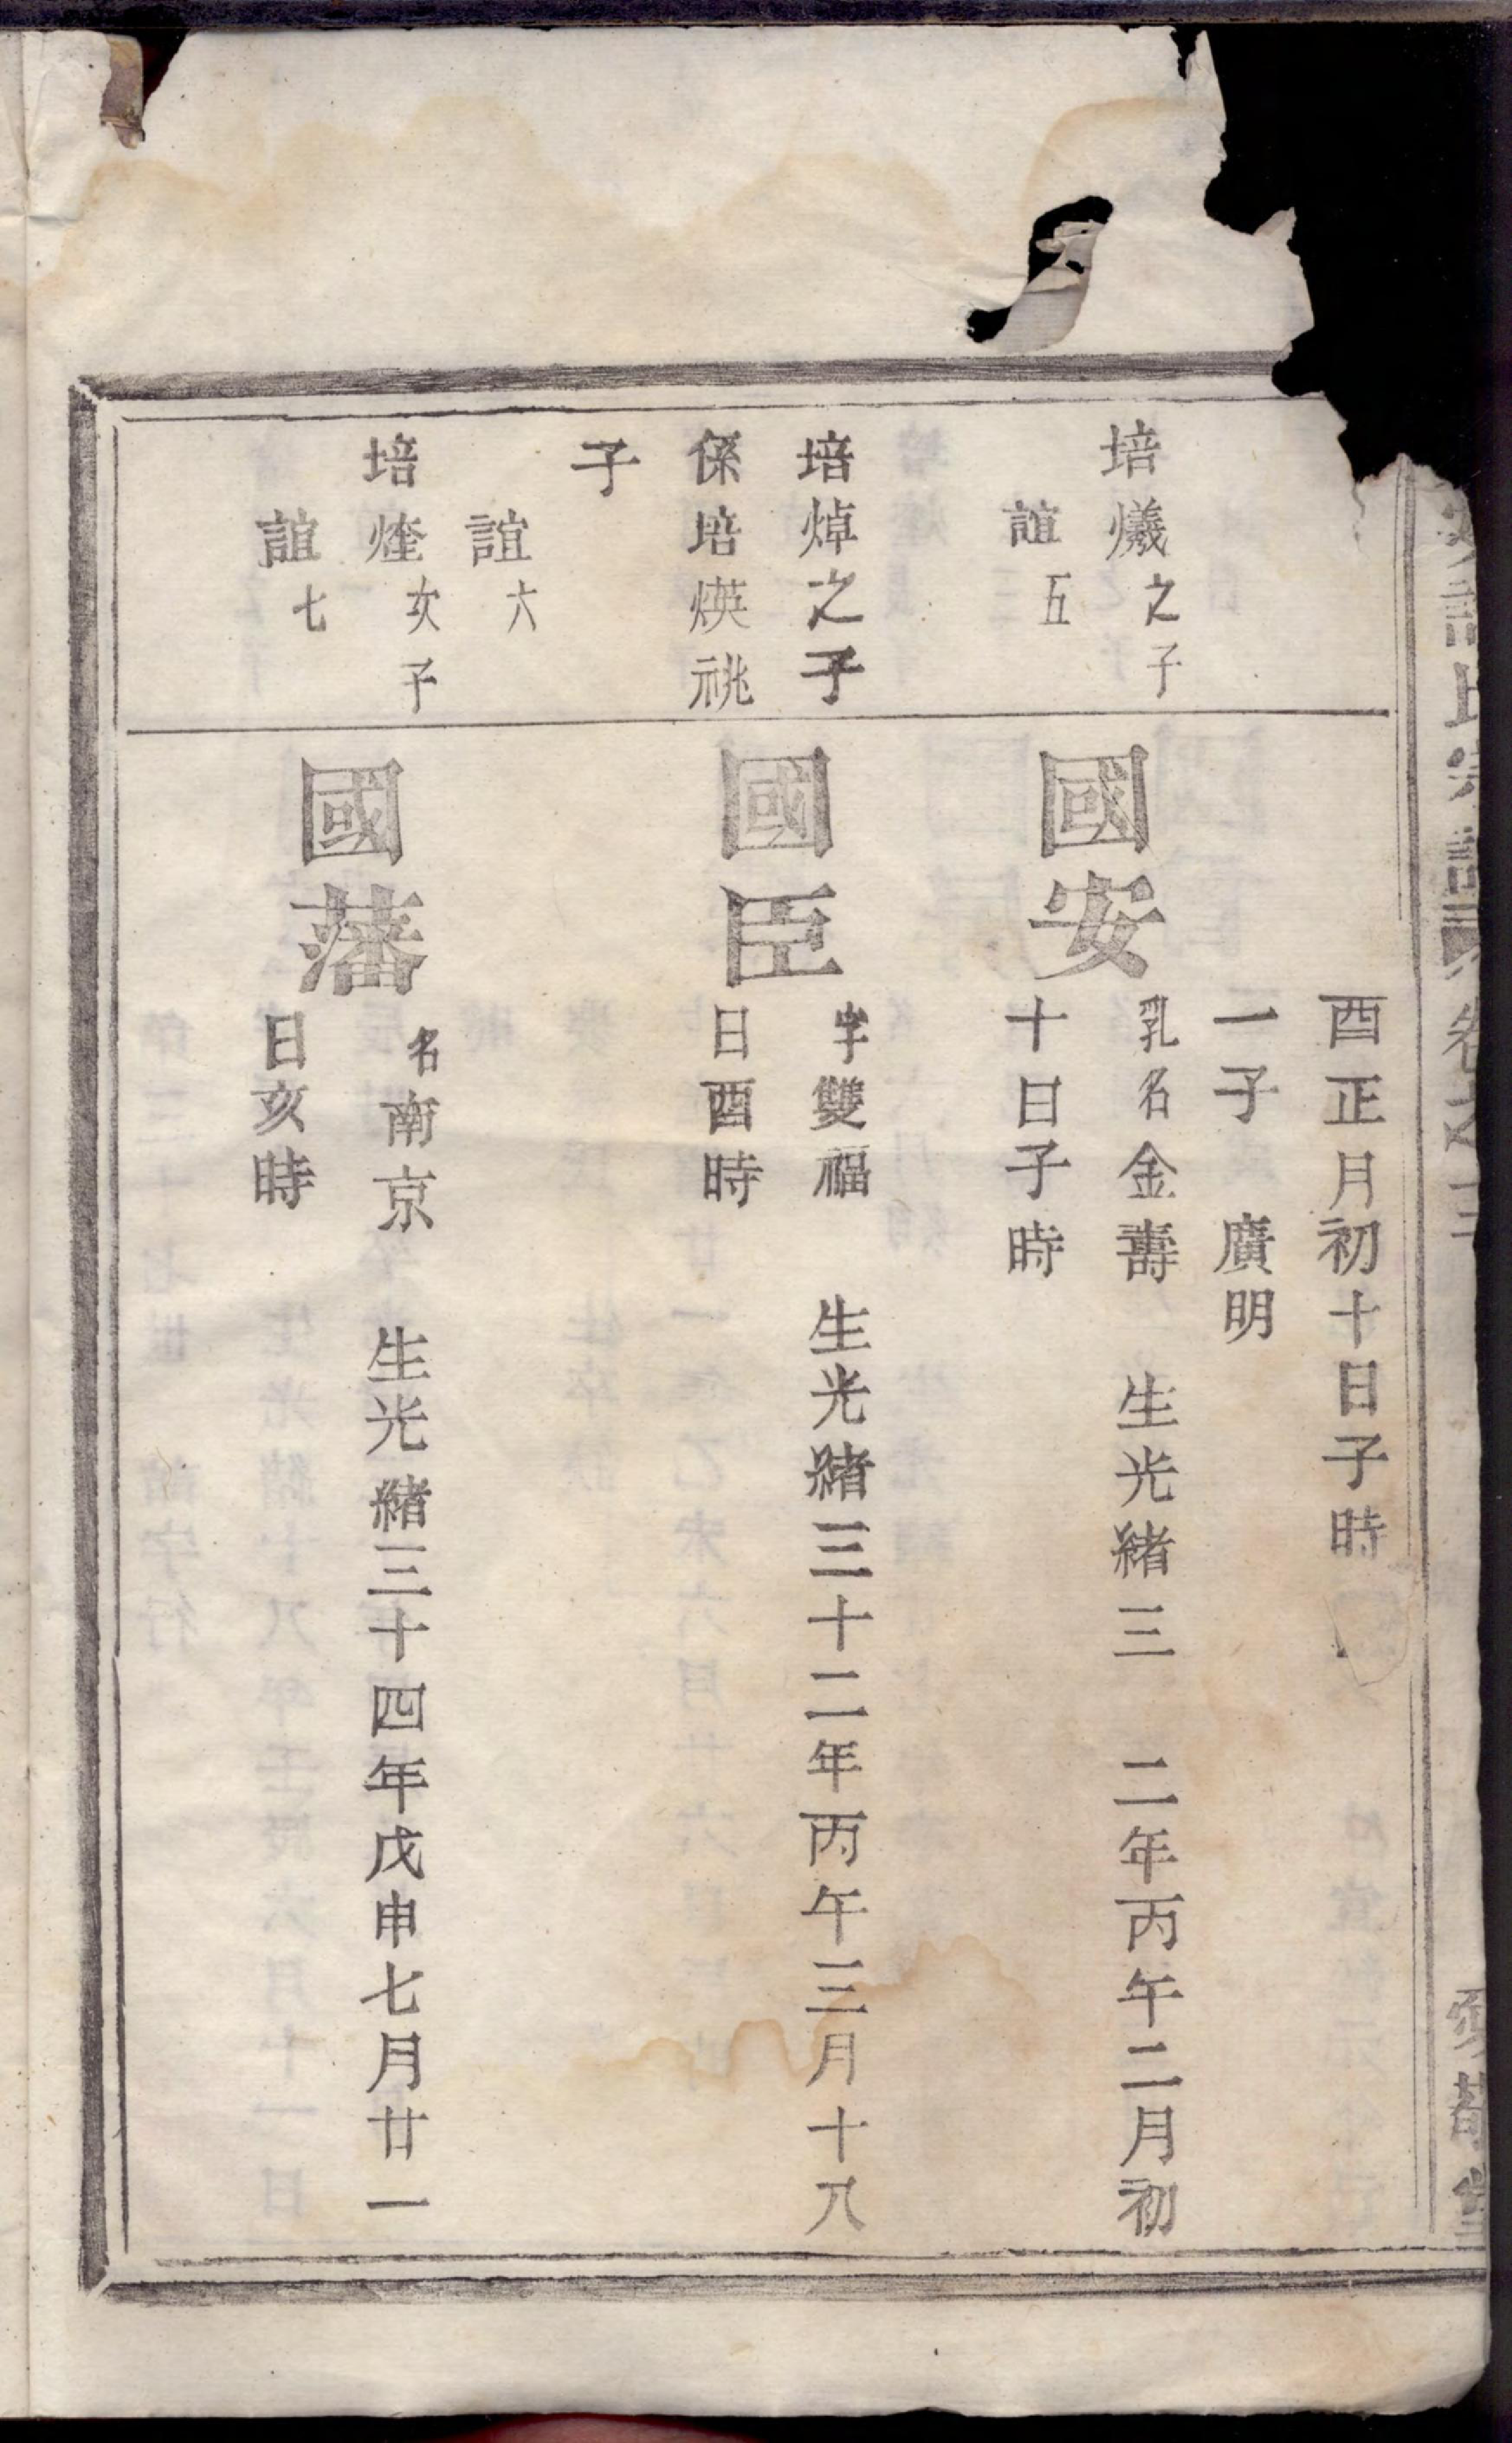 氏宗譜 卷之三
愛敬堂
酉正月初十日子時
一子 廣明
培爔之子
誼五
國安
乳名金壽 生光緒三 二年丙午二月初
十日子時
培焯之子
係培煐祧
子
誼六
國臣
字雙福 生光緒三十二年丙午三月十八
日酉時
培煃次子
誼七
國藩
名南京 生光緒三十四年戊申七月廿一
日亥時